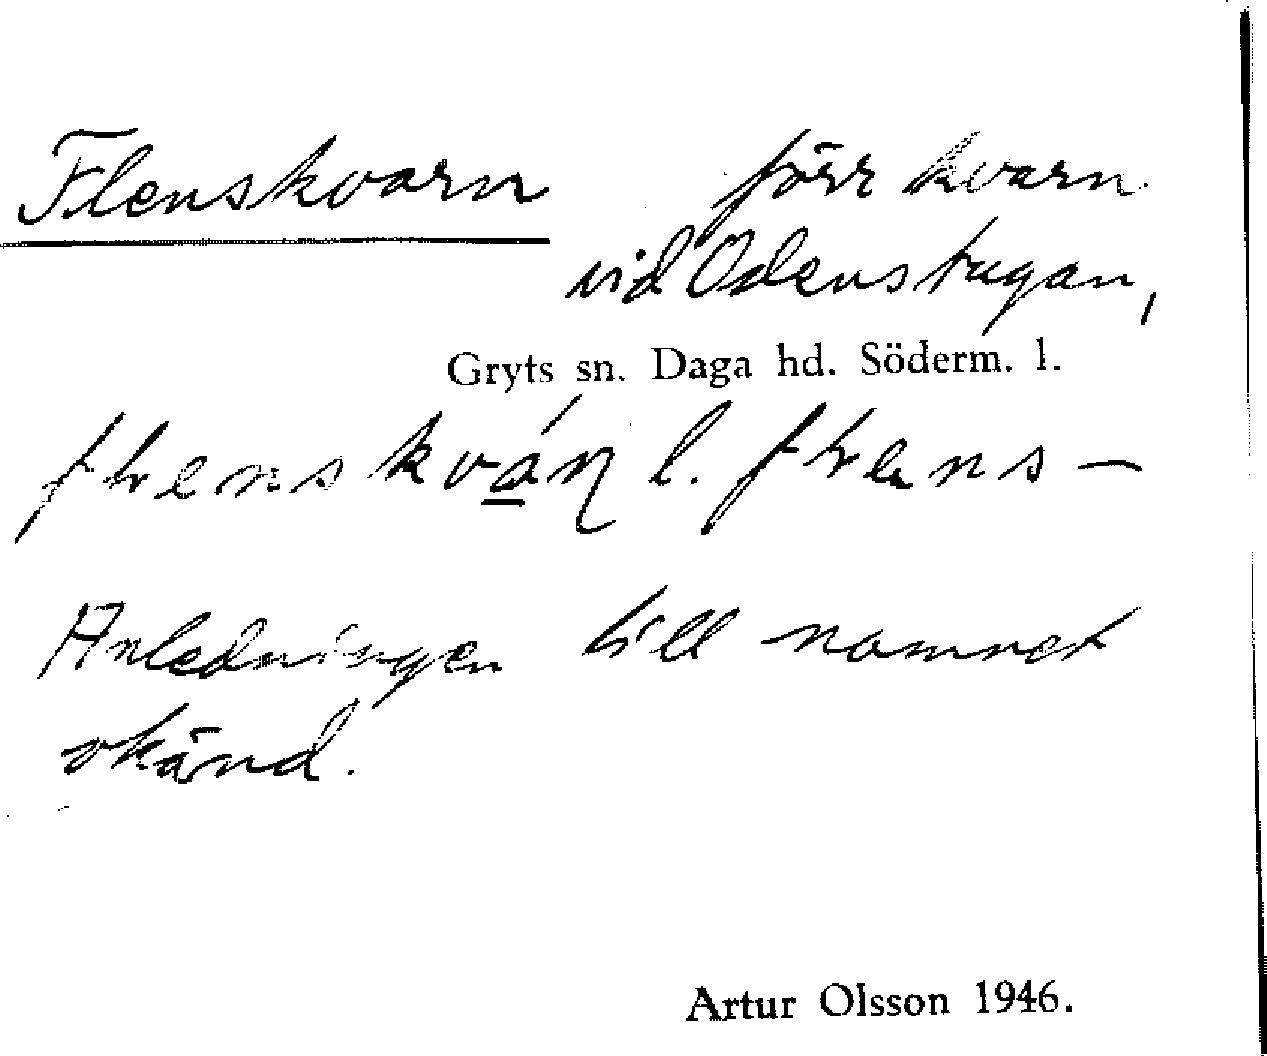 Flenskvarn förr kvarn
vid Odenstugan,
Gryts sn. Daga hd. Söderm. l.
l.
Anledningen till namnet
okänd.
Artur Olsson 1946.